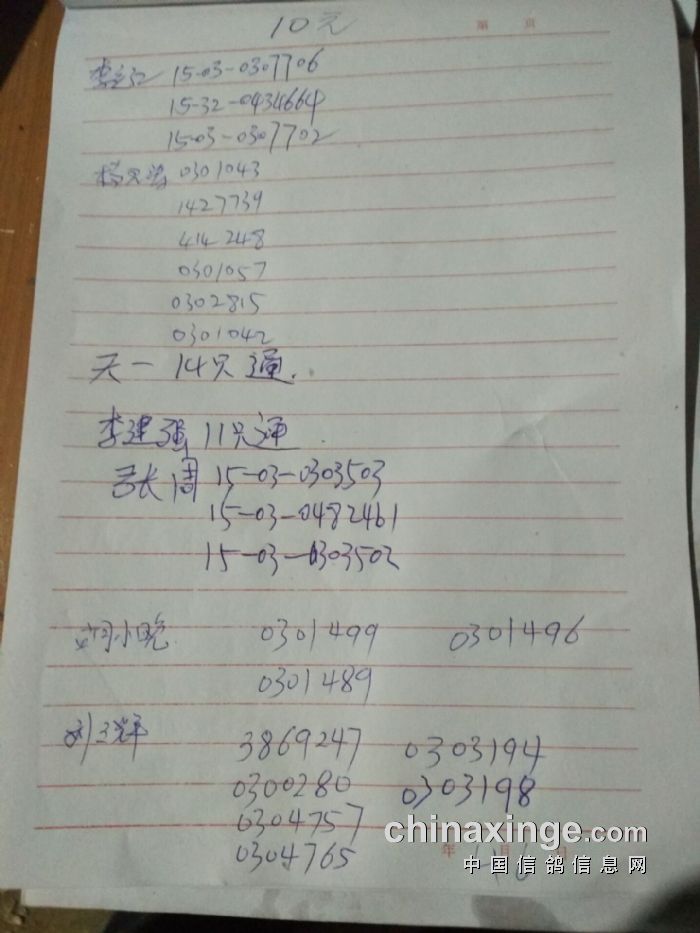 10元
第 页
李 15-03-0307706
15-32-0434664
15-03-0307702
杨文 0301043
1427739
414248
0301057
0302815
0301042
天一 14只通.
李建强 11只通
张周 15-03-0303503
15-03-0482461
15-03-0303502
小晓 0301499 0301496
0301489
刘 3869247 0303194
0300280 0303198
0304757
0304765
年 月 日
chinaxinge.com
中国信鸽信息网